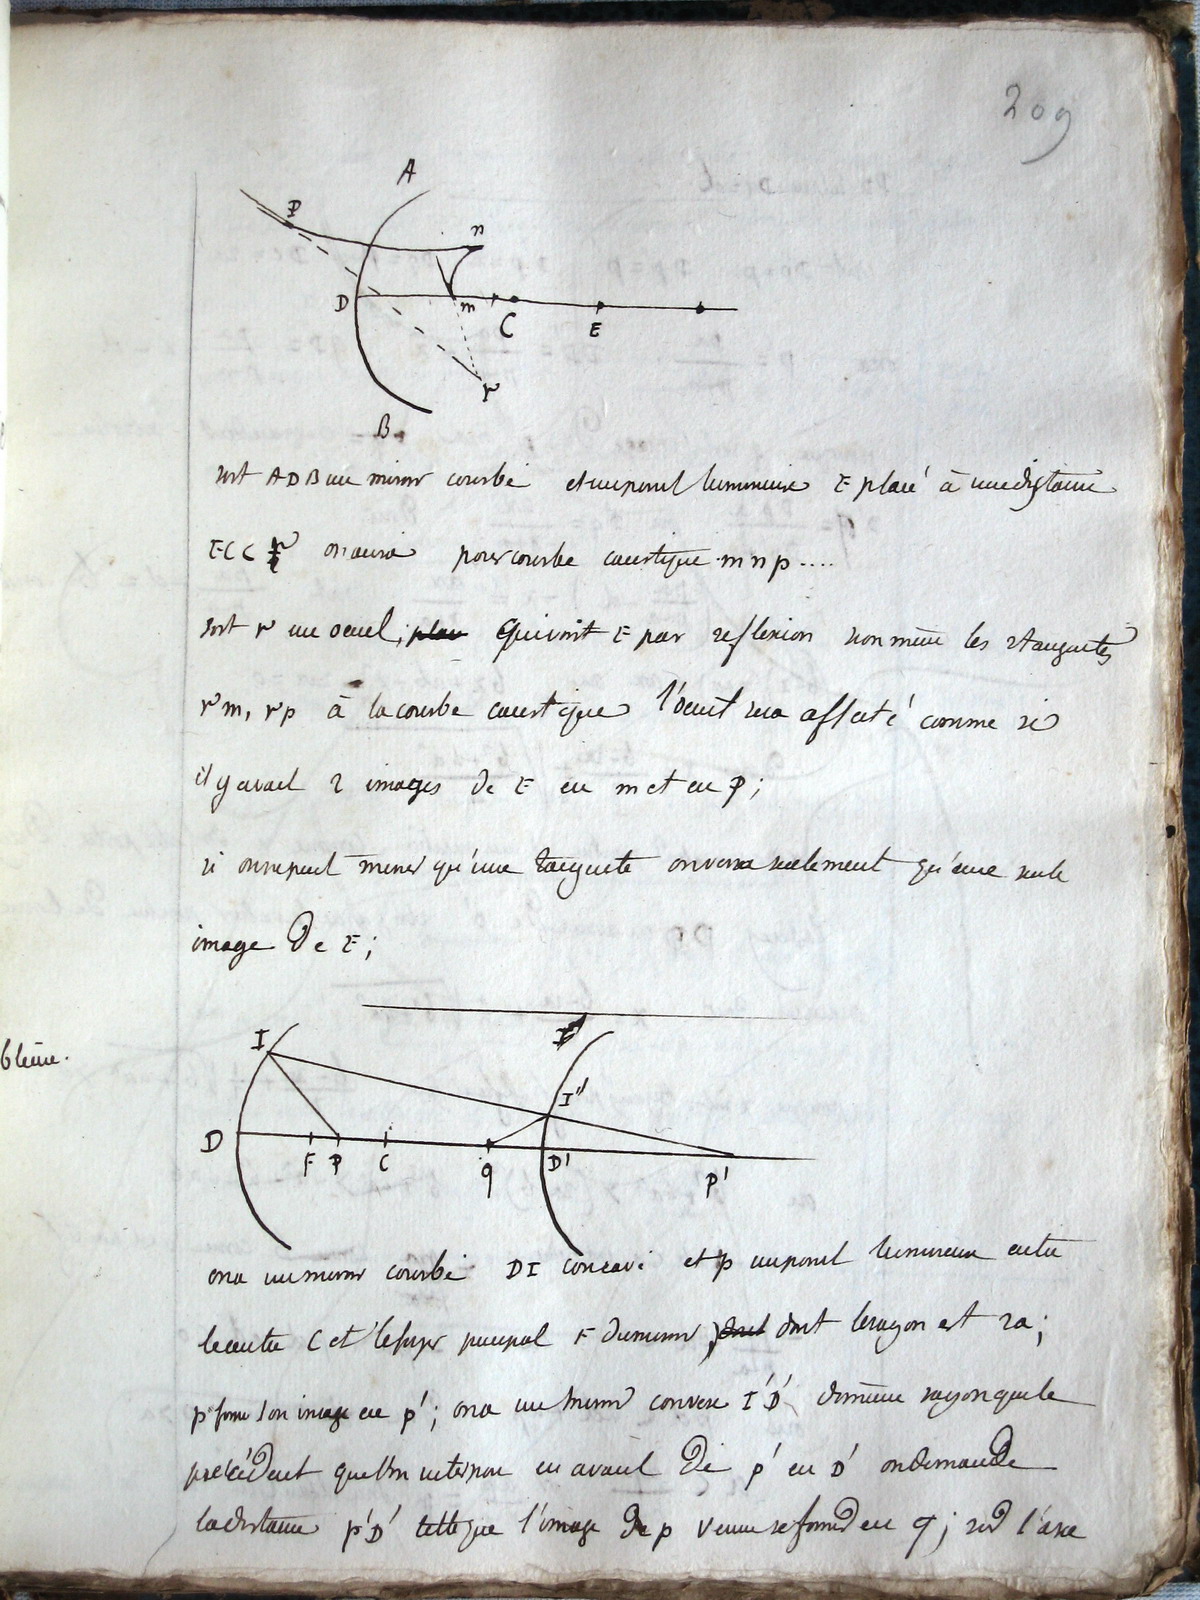 209
A
P
n
D
m
C
E
r
B
soit ADB un miroir courbé et un point lumineux E placé à une distance
EC C on aura pour courbe caustique mnp....
soit r un oeuil, plac qui voit E par reflexion si on mene les 2 tangentes
rm, rp à la courbe caustique l'oeuil sera affecté comme si
il y avait 2 images de E en m et en P;
si on ne peut mener qu'une tangente on verra seulement qu'une seule
image de E;
I
I'
I''
blême.
D
F P C q D' P'
on a un miroir courbé DI concave et p un point lumineux entre
le centre C et le foyer principal F du miroir dont dont le rayon est 2a;
p forme son image en p'; on a un miroir convexe I'D' de même rayon que le
précédent que l'on interpose en avant de p' en D' on demande
la distance p'D' telle que l'image de p vienne se former en q; sur l'axe